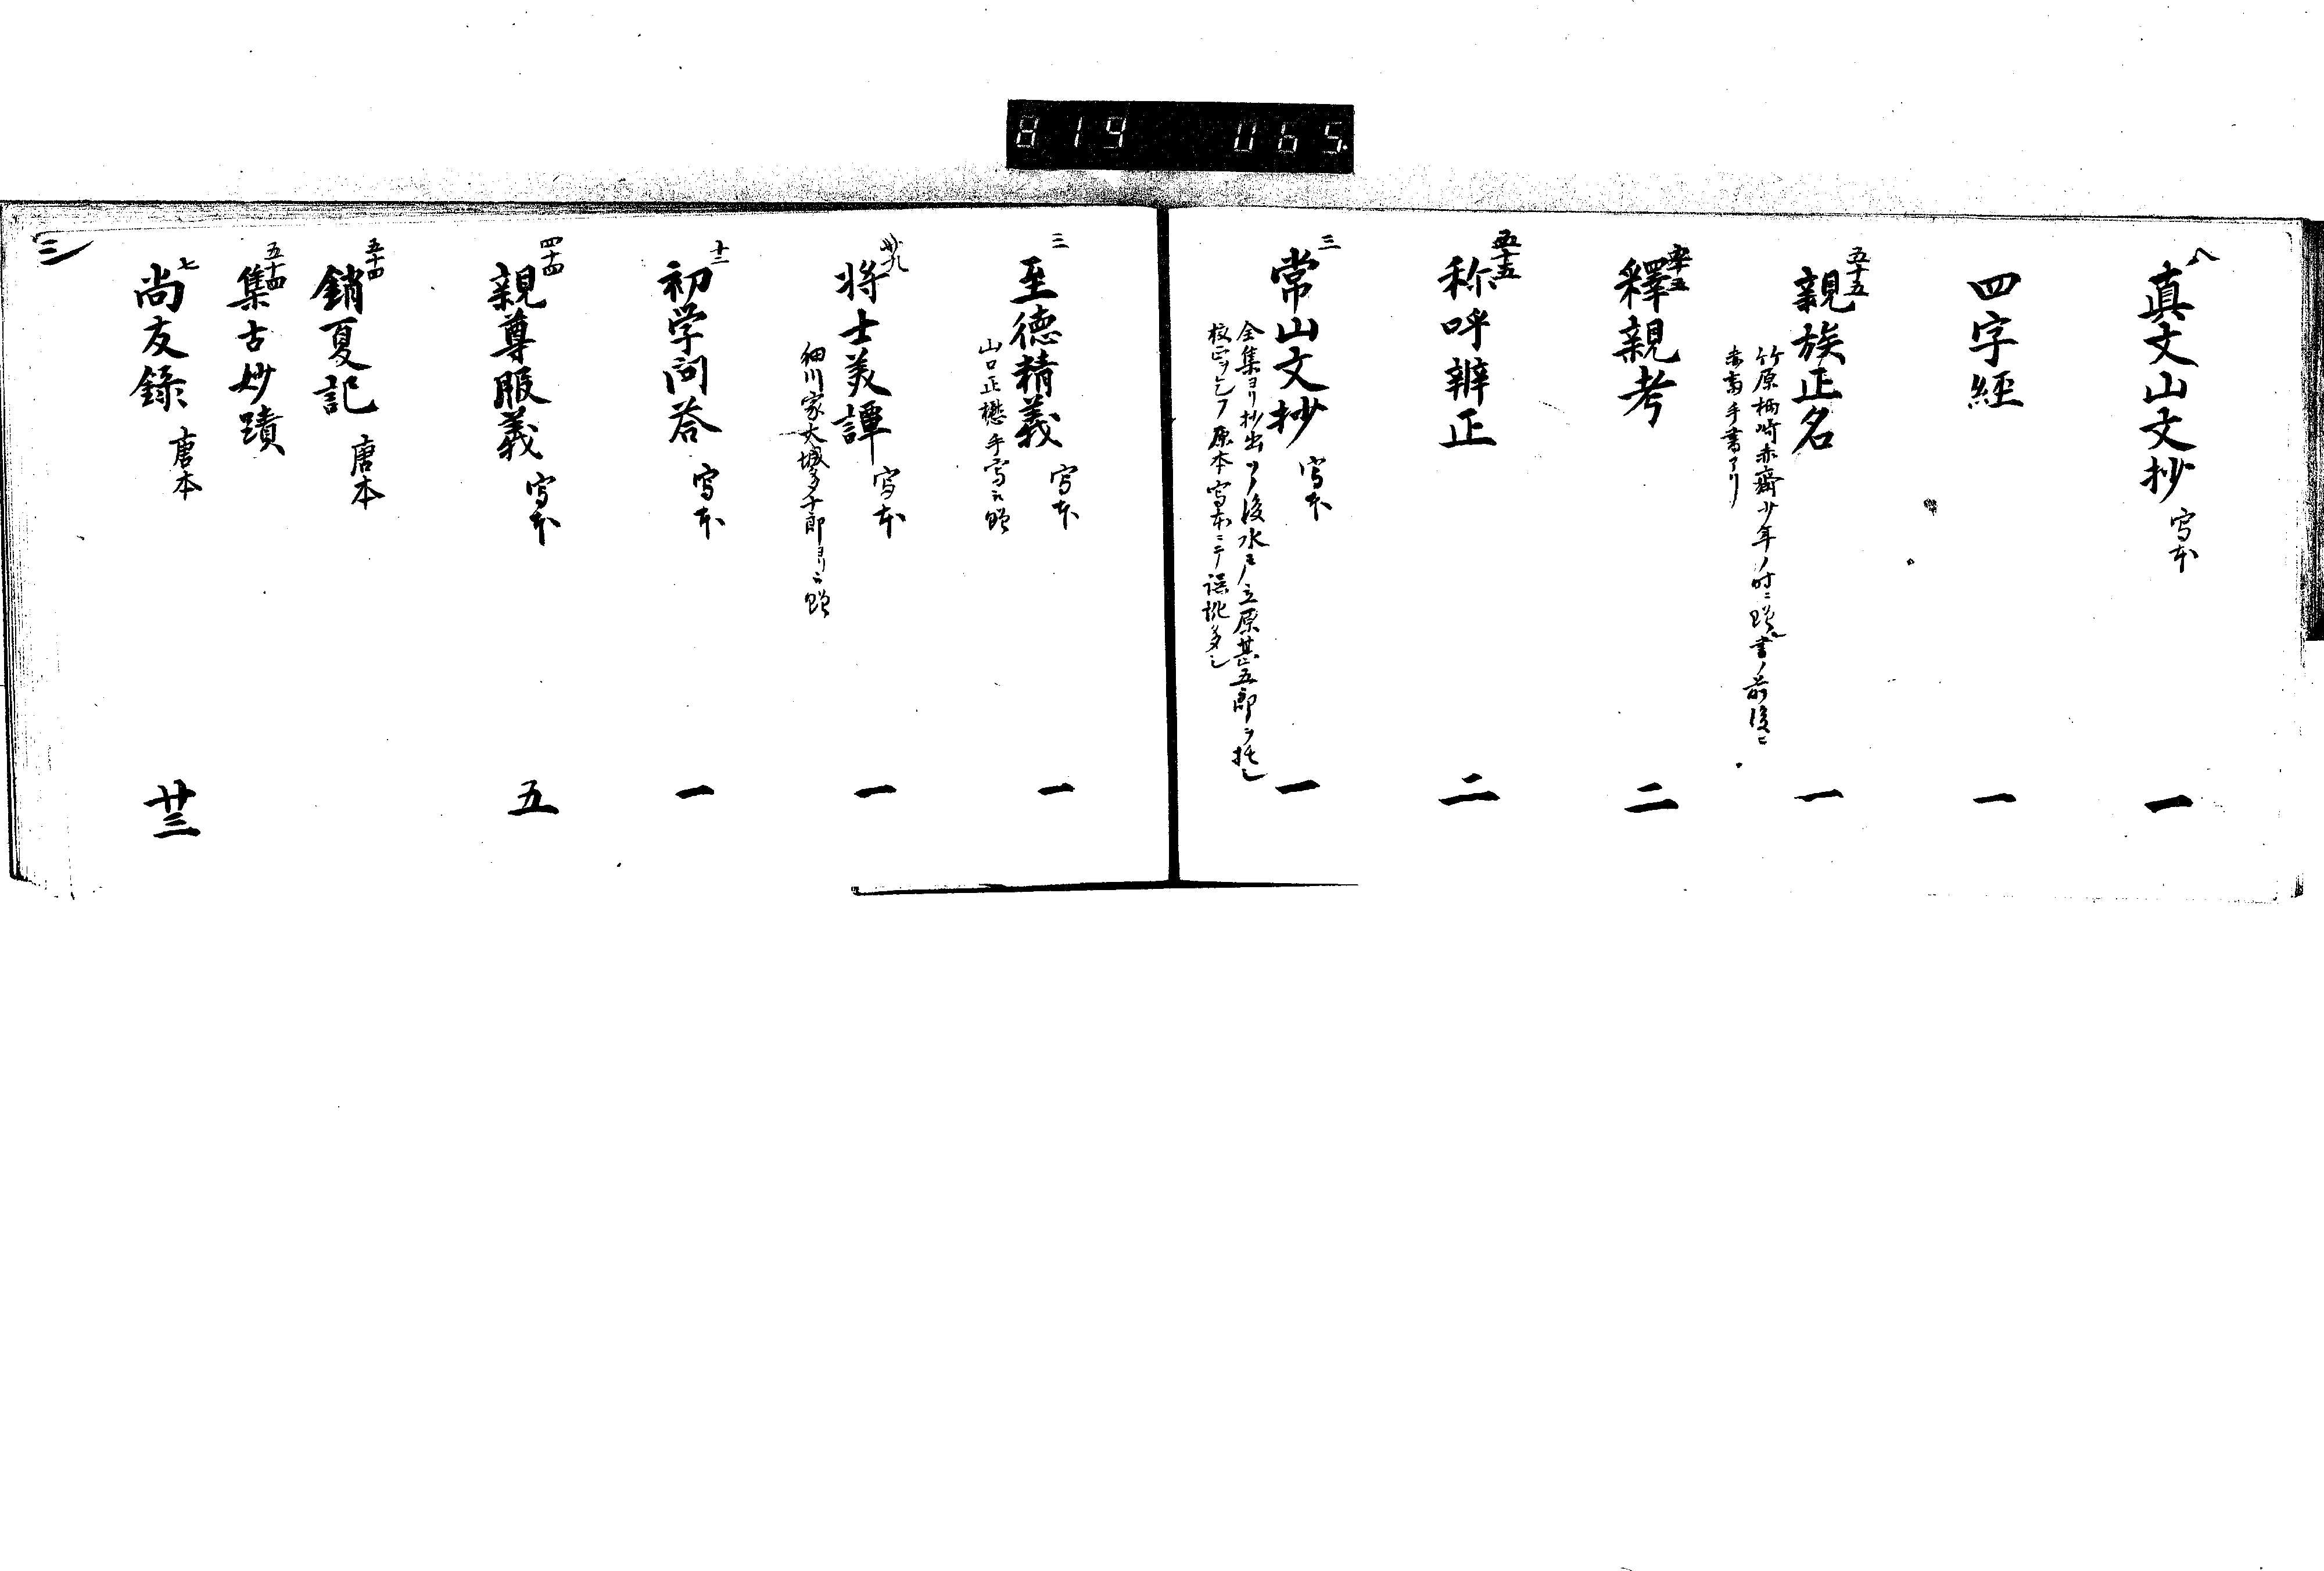 819 065
八
真文山文抄 写本 一
四字經 一
五十五
親族正名 一
竹原柄崎赤齋少年ノ時ニ贈ル書ノ前後ニ
赤齋手書アリ
五十五
釋親考 二
五十五
称呼辨正 二
三
常山文抄 写本 一
全集ヨリ抄出ス後水戸ノ立原甚五郎ヲ托シ
校正ヲ乞フ原本写本ニテ誤訛多シ
三
至德精義 写本 一
山口正懋手写
卅九
将士美譚 写本 一
細川家大城多十郎ヨリ贈
十二
初学問答 写本 一
四十四
親尊服義 写本 五
五十四
銷夏記 唐本
五十四
集古妙蹟
七
尚友錄 唐本 廿三
三